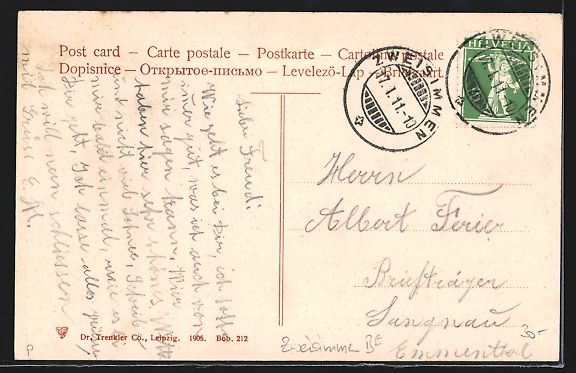 Post card – Carte postale – Postkarte – Cartolina postale
Dopisnice – Открытое-письмо – Levelező-Lap – Brefkort.
HELVETIA
ZWEISIMMEN
17.I.11.-10
Lieber Freund!
Wie geht es bei dir, ich hoffe
immer gut, was ich auch von
mir sagen kann, Wir
haben hier sehr schönes Wetter
und nicht viel Schnee, Schreibe
mir bald einmal, wie es
dir geht. Ich lasse alles grüssen
Ich will nun schliessen
mit Gruss E. H.
Herrn
Albert Ferier
Briefträger
Langnau
Emmenthal
Dr. Trenkler Co., Leipzig. 1905. Bob. 212
Zweisimmen BE